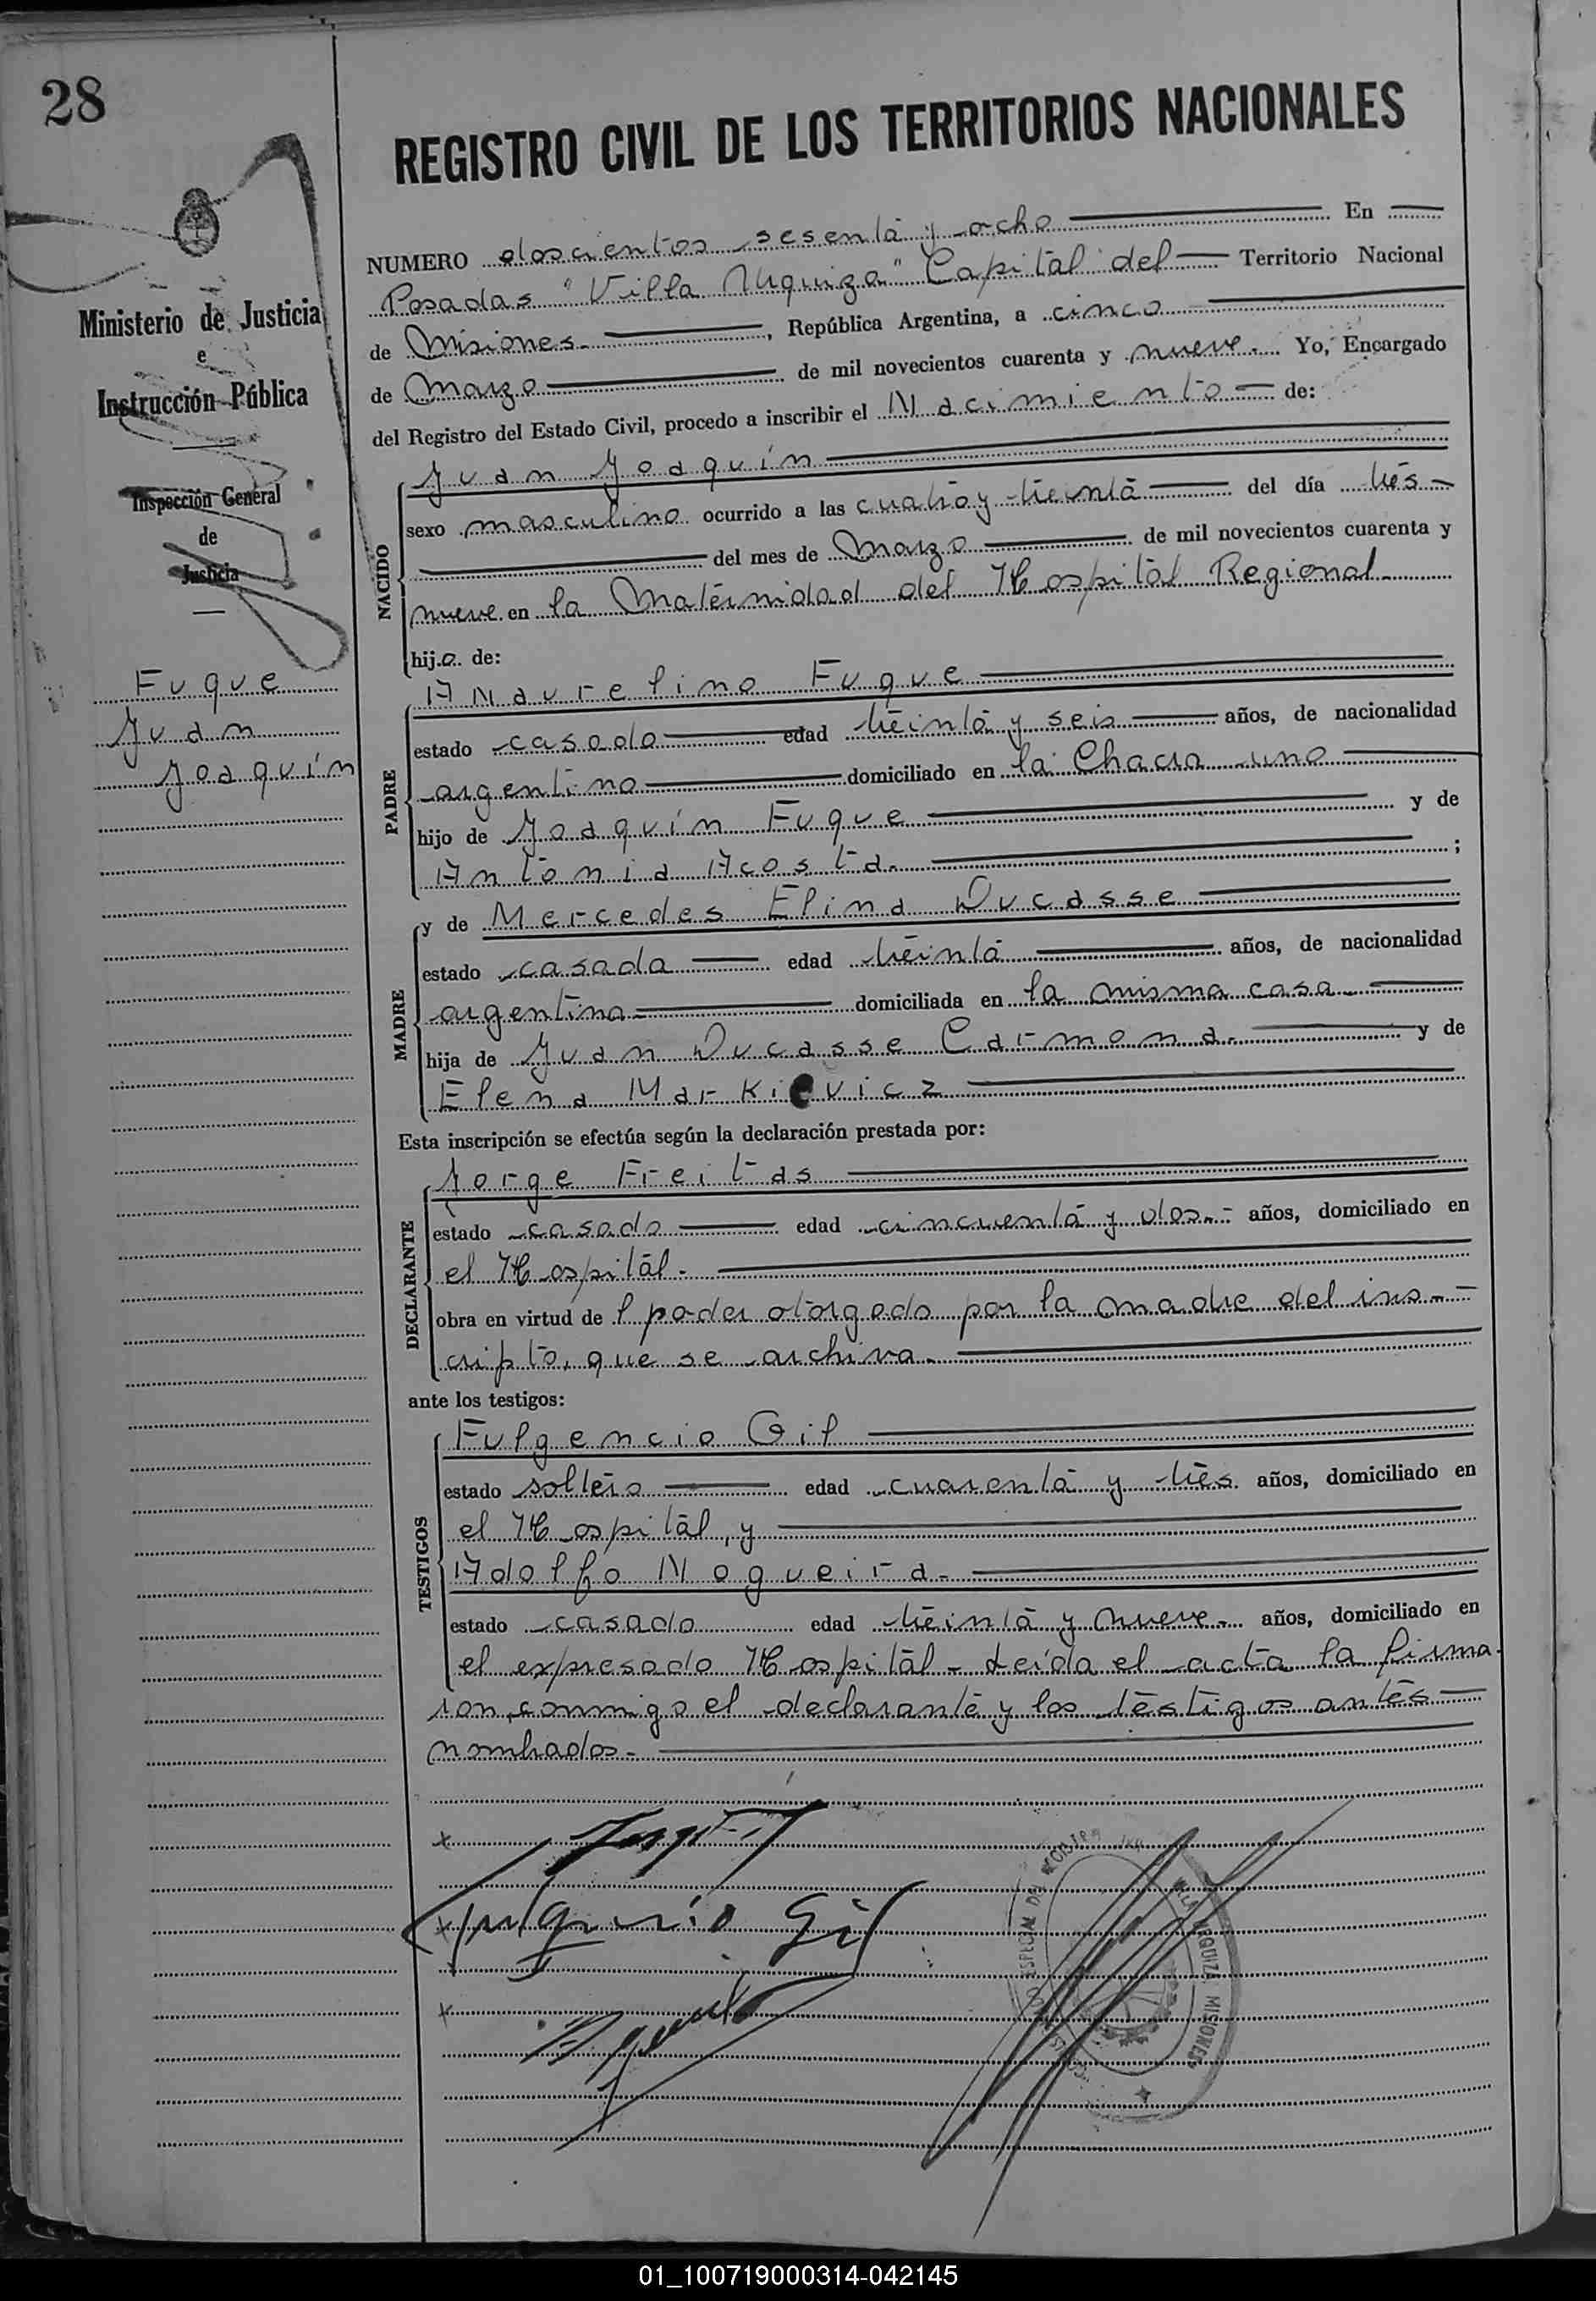 28
REGISTRO CIVIL DE LOS TERRITORIOS NACIONALES
Ministerio de Justicia
e
Instrucción Pública
Inspección General
de
Justicia
Fuque
Juan
Joaquín
NUMERO doscientos sesenta y ocho En
Posadas "Villa Urquiza" Capital del Territorio Nacional
de Misiones.- , República Argentina, a cinco
de Marzo de mil novecientos cuarenta y nueve.- Yo, Encargado
del Registro del Estado Civil, procedo a inscribir el Nacimiento de:
NACIDO
Juan Joaquín
sexo masculino ocurrido a las cuatro y treinta del día tres
del mes de Marzo de mil novecientos cuarenta y
nueve en la Maternidad del Hospital Regional
hijo de:
PADRE
Maurelino Fuque
estado casado edad treinta y seis años, de nacionalidad
argentino domiciliado en la Chacra uno
hijo de Joaquín Fuque y de
Antonia Acosta.- ;
MADRE
y de Mercedes Elina Ducasse
estado casada edad treinta años, de nacionalidad
argentina domiciliada en la misma casa.-
hija de Juan Ducasse Carmona.- y de
Elena Markievicz
Esta inscripción se efectúa según la declaración prestada por:
DECLARANTE
Jorge Freitas
estado casado edad cincuenta y dos.- años, domiciliado en
el Hospital.-
obra en virtud de l poder otorgado por la madre del ins-
cripto, que se archiva.-
ante los testigos:
TESTIGOS
Fulgencio Gil
estado soltero edad cuarenta y tres años, domiciliado en
el Hospital, y
Adolfo Nogueira.-
estado casado edad treinta y nueve.- años, domiciliado en
el expresado Hospital.- Leída el acta la firma-
ron conmigo el declarante y los testigos antes
nombrados.-
Fulgencio Gil
URQUIZA MISIONES
01_100719000314-042145